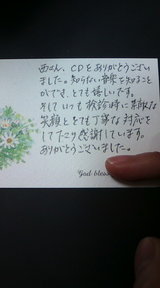 西さん、CDをありがとうござい
ました。知らない音楽を知ること
ができ、とても嬉しいです。
そしていつも検診時に素敵な
笑顔ととても丁寧な対応を
して下さり感謝しています。
ありがとうございました。
God bless